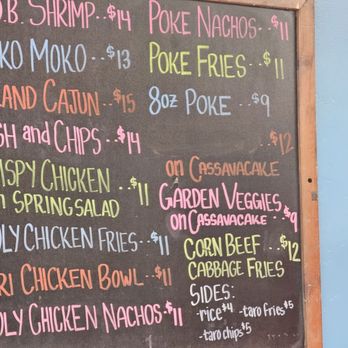 B. SHRIMP..$14
KO MOKO..$13
AND CAJUN..$15
SH and CHIPS..$14
ISPY CHICKEN..$11
SPRING SALAD
LY CHICKEN FRIES..$11
RI CHICKEN BOWL..$11
LY CHICKEN NACHOS.$11
POKE NACHOS..$11
POKE FRIES..$11
8oz POKE..$9
$12
on CASSAVACAKE
GARDEN VEGGIES
on CASSAVACAKE..$9
CORN BEEF..$12
CABBAGE FRIES
SIDES:
-rice $4 -taro fries $5
-taro chips $5